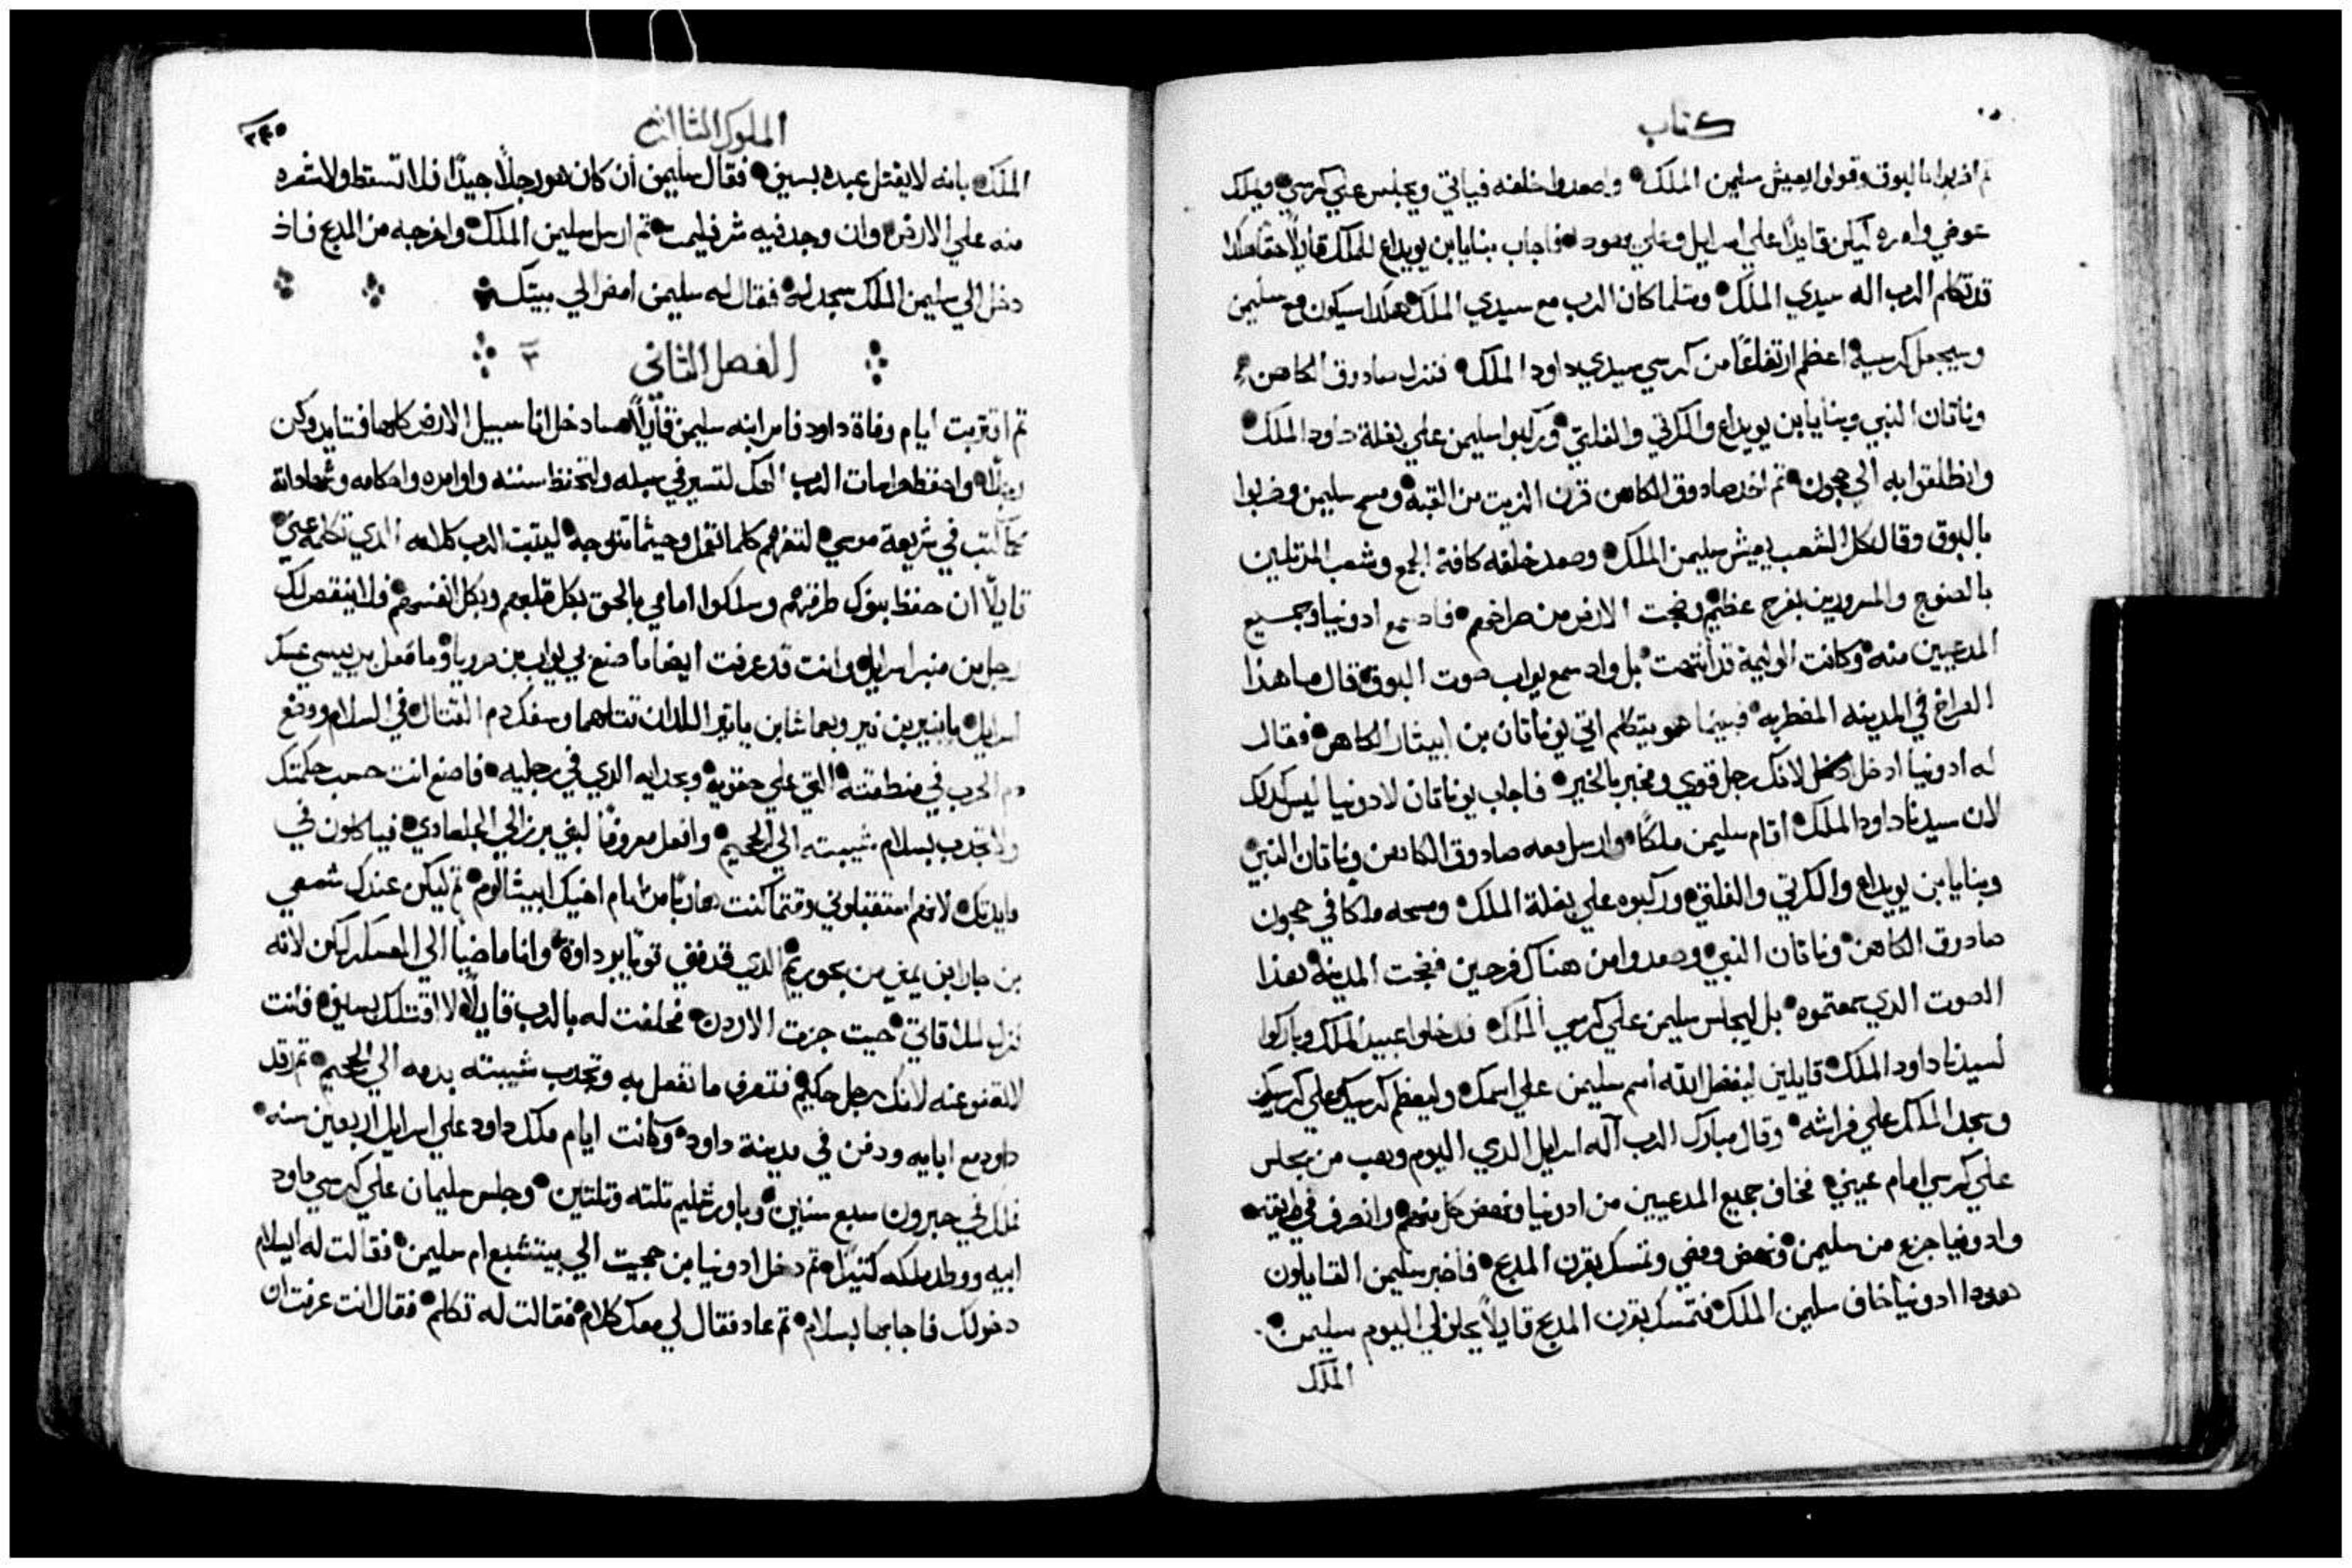 كتاب
ثم اضربوا بالبوق وقولوا ليعيش سليمن الملك واصعدوا خلفه فياتي ويجلس علي كرسي ويملك
عوضي وامره ليكن قايدًا علي اسرايل وعلي يهودا فاجاب بنايا بن يويداع للملك قايلًا حقا هكذا
قد تكلم الرب اله سيدي الملك ومثلما كان الرب مع سيدي الملك هكذا سيكون مع سليمن
وسيجعل كرسيه اعظم ارتفاعًا من كرسي سيدي داود الملك فنزل صادوق الكاهن
وناتان النبي وبنايا بن يويداع والكرتي والفلتي وركبوا سليمن علي بغلة داود الملك
وانطلقوا به الي جيحون ثم اخذ صادوق الكاهن قرن الزيت من القبه ومسح سليمن وضربوا
بالبوق وقال كل الشعب يعيش سليمن الملك وصعد خلفه كافة الجمع وشعب المرتلين
بالصنوج والمسرورين بفرح عظيم وضجت الارض من صراخهم فاذ سمع ادونيا وجميع
المدعيين منه وكانت الوليمة قد انتهت بل واذ سمع يواب صوت البوق قال ما هذا
الصراخ في المدينه المضطربه فبينما هو يتكلم اتي يوناتان بن ابيتار الكاهن فقال
له ادونيا ادخل لانك رجل قوي ومخبر بالخير فاجاب يوناتان لادونيا ليس كذلك
لان سيدنا داود الملك اقام سليمن ملكًا وارسل معه صادوق الكاهن وناتان النبي
وبنايا بن يويداع والكرتي والفلتي وركبوه علي بغلة الملك ومسحه ملكا في جيحون
صادوق الكاهن وناتان النبي وصعدوا من هناك فرحين فضجت المدينه هذا
الصوت الذي سمعتموه بل ليجلس سليمن علي كرسي الملك فدخلوا عبيد الملك وباركوا
لسيدنا داود الملك قايلين ليفضل الله اسم سليمن علي اسمك وليعظم كرسيه علي كرسيك
وسجد الملك علي فراشه وقال مبارك الرب اله اسرايل الذي اليوم وهب من يجلس
علي كرسي امام عيني فخاف جميع المدعيين من ادونيا ونهض كل منهم وانصرف في طريقه
وادونيا جزع من سليمن ونهض ومضي وتمسك بقرن المدبح فاخبر سليمن القايلون
هوذا ادونيا خاف سليمن الملك فتمسك بقرن المدبح قايلًا يحلف لي اليوم سليمن
الملك
الملوك الثالث
٢٤٥
الملك بانه لا يقتل عبده بسيف فقال سليمن ان كان هو رجلًا جيدًا فلا تسقط ولا شعره
منه علي الارض وان وجد فيه شر فليمت ثم ارسل سليمن الملك واخرجه من المدبح فاذ
دخل الي سليمن الملك سجد له فقال له سليمن امض الي بيتك
الفصل الثاني ٢
ثم اقتربت ايام وفاة داود فامر ابنه سليمن قايلًا هاندا دخل انا سبيل الارض كلها فتايد وكن
رجلًا واحفظ حراسات الرب الهك لتسير في سبله وتحفظ سننه واوامره واحكامه وشهاداته
كما كتب في شريعة موسي لتفهم كلما تعمل وحيثما تتوجه ليتبت الرب كلامه الذي تكلمه عني
قايلًا ان حفظ بنوك طرقهم وسلكوا امامي بالحق بكل قلوبهم وبكل انفسهم فلا ينقص لك
رجل من منبر اسرايل وانت قد عرفت ايضًا ما صنع بي يواب بن صرويا وما فعل بريسي عسكر
اسرايل بانير بن نير وبعماشا بن ياتير اللذان قتلهما وسفك دم القتال في السلام ووضع
دم الحرب في منطقته التي علي حقويه وبحدايه الذي في رجليه فاصنع انت حسب حكمتك
ولا تحدر بسلام شيبته الي الجحيم وافعل معروفًا لبني برزالي الجلعادي فياكلون في
مايدتك لانهم استقبلوني وقتما كنت هاربًا من امام اخيك ابيشالوم ثم ليكن عندك شمعي
بن جارا ابن يميني من بحوريم الذي قدفني وانا ماضيًا الي المعسكر لكن لانه
نزل لملاقاتي حيت جزت الاردن فحلفت له بالرب قايلًا لا اقتلك بسيف فانت
لا تعفو عنه لانك رجل حكيم فتعرف ما تفعل به وتحدر شيبته بدمه الي الجحيم ثم رقد
داود مع ابايه ودفن في مدينة داود وكانت ايام ملك داود علي اسرايل اربعين سنه
فملك في حبرون سبع سنين وباورشليم تلته وتلتين وجلس سليمان علي كرسي داود
ابيه ووطد ملكه كثيرًا ثم دخل ادونيا بن حجيت الي بيتشبع ام سليمن فقالت له السلام
دخولك فاجابها بسلام ثم عاد فقال لي معك كلام فقالت له تكلم فقال انت عرفت ان